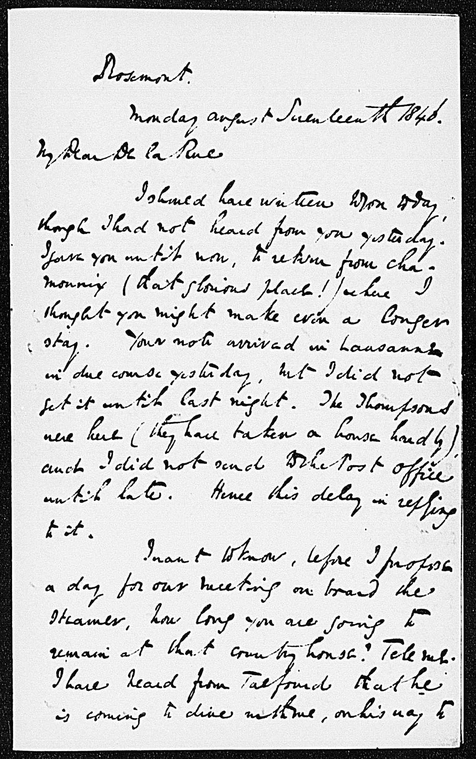 Rosemont.
Monday August Seventeenth 1846.
My Dear De la Rue
I should have written to you today,
though I had not heard from you yesterday.
I gave you until now, to return from Cha-
mounix (that glorious place!) where I
thought you might make even a longer
stay. Your note arrived in Lausanne
in due course yesterday, but I did not
get it until last night. The Thompsons
were here (they have taken a house hard by)
and I did not send to the Post office
until late. Hence this delay in replying
to it.
I want to know, before I propose
a day for our meeting on board the
Steamer, how long you are going to
remain at that country house? Tell me.
I have heard from Talfourd that he
is coming to dine with me, on his way to